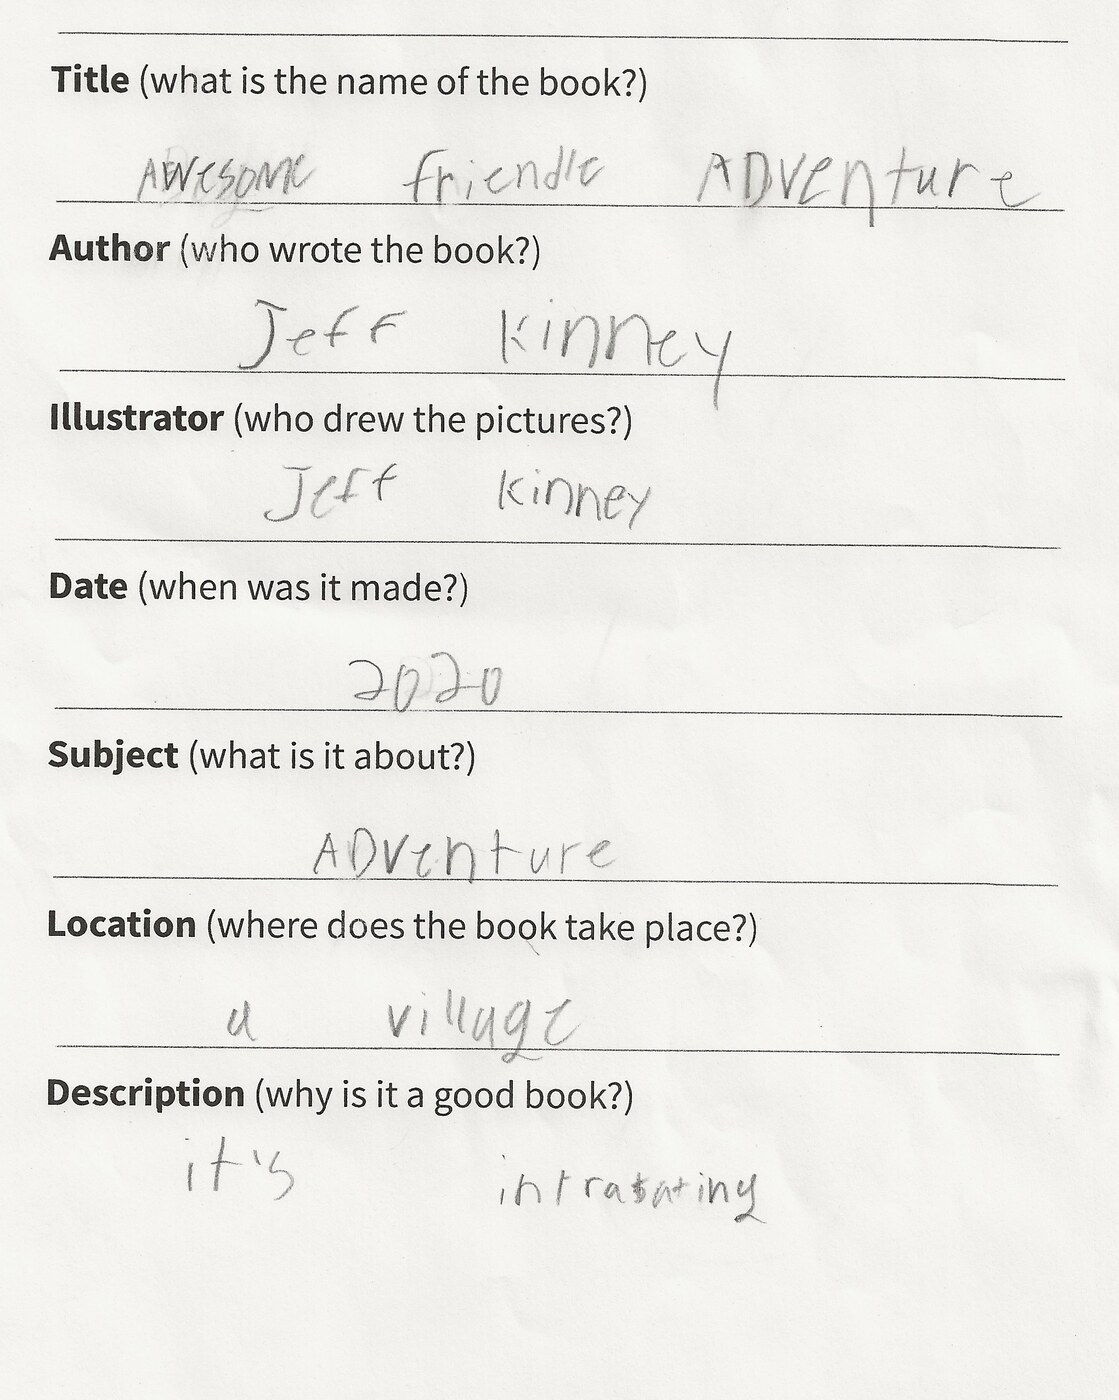 Title (what is the name of the book?)
AWesome friendle ADVenture
Author (who wrote the book?)
Jeff Kinney
Illustrator (who drew the pictures?)
Jeff Kinney
Date (when was it made?)
2020
Subject (what is it about?)
ADventure
Location (where does the book take place?)
a village
Description (why is it a good book?)
it's intrasating